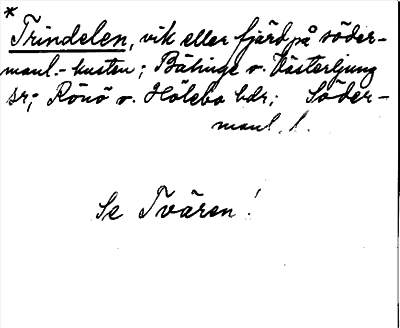 *
Trindelen, vik eller fjärd på söder-
manl.-kusten; Bälinge o. Västerljung
sr; Rönö o. Hölebo hdr; Söder-
manl. l.
Se Tvären!